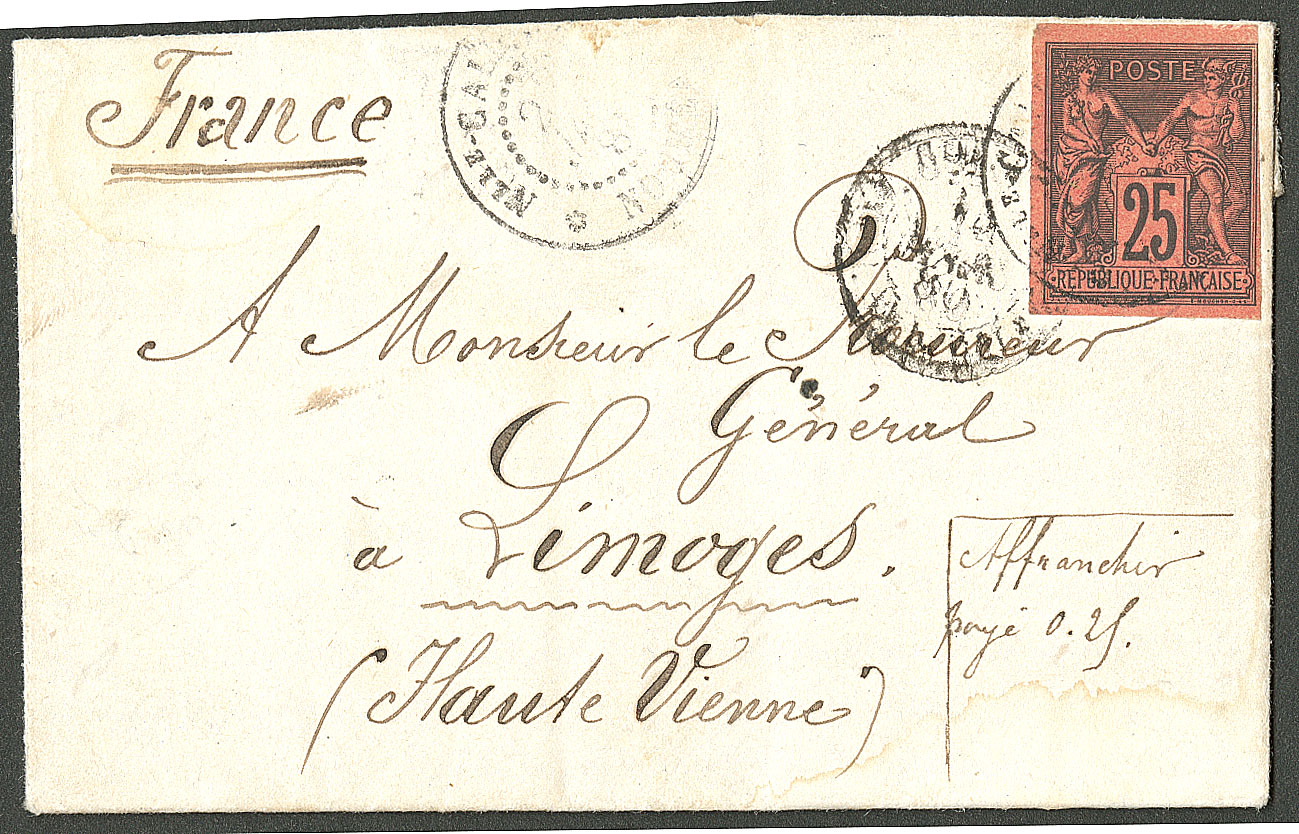 France
NLLE-CAL
NOUMEA
POSTE
25
RÉPUBLIQUE FRANÇAISE
A Monsieur le Procureur
Général
à Limoges.
(Haute Vienne)
Affranchir
payé 0.25.